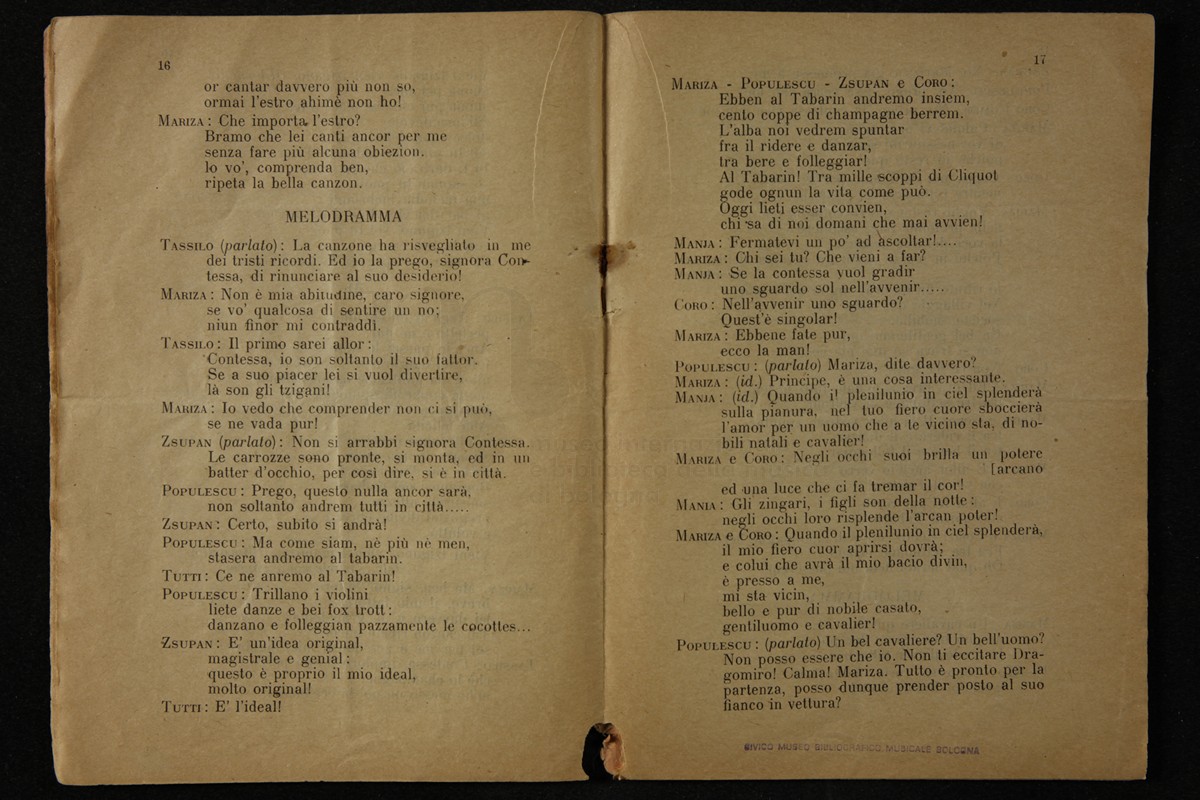 16
or cantar davvero più non so,
ormai l'estro ahimè non ho!
MARIZA: Che importa l'estro?
Bramo che lei canti ancor per me
senza fare più alcuna obiezion.
Io vo', comprenda ben,
ripeta la bella canzon.
MELODRAMMA
TASSILO (parlato): La canzone ha risvegliato in me
dei tristi ricordi. Ed io la prego, signora Con-
tessa, di rinunciare al suo desiderio!
MARIZA: Non è mia abitudine, caro signore,
se vo' qualcosa di sentire un no;
niun finor mi contraddì.
TASSILO: Il primo sarei allor:
Contessa, io son soltanto il suo fattor.
Se a suo piacer lei si vuol divertire,
là son gli tzigani!
MARIZA: Io vedo che comprender non ci si può,
se ne vada pur!
ZSUPAN (parlato): Non si arrabbi signora Contessa.
Le carrozze sono pronte, si monta, ed in un
batter d'occhio, per così dire, si è in città.
POPULESCU: Prego, questo nulla ancor sarà,
non soltanto andrem tutti in città.....
ZSUPAN: Certo, subito si andrà!
POPULESCU: Ma come siam, nè più nè men,
stasera andremo al tabarin.
TUTTI: Ce ne anremo al Tabarin!
POPULESCU: Trillano i violini
liete danze e bei fox trott:
danzano e folleggian pazzamente le cocottes...
ZSUPAN: E' un'idea original,
magistrale e genial:
questo è proprio il mio ideal,
molto original!
TUTTI: E' l'ideal!
17
MARIZA - POPULESCU - ZSUPAN e CORO:
Ebben al Tabarin andremo insiem,
cento coppe di champagne berrem.
L'alba noi vedrem spuntar
fra il ridere e danzar,
tra bere e folleggiar!
Al Tabarin! Tra mille scoppi di Cliquot
gode ognun la vita come può.
Oggi lieti esser convien,
chi sa di noi domani che mai avvien!
MANJA: Fermatevi un po' ad ascoltar!....
MARIZA: Chi sei tu? Che vieni a far?
MANJA: Se la contessa vuol gradir
uno sguardo sol nell'avvenir.....
CORO: Nell'avvenir uno sguardo?
Quest'è singolar!
MARIZA: Ebbene fate pur,
ecco la man!
POPULESCU: (parlato) Mariza, dite davvero?
MARIZA: (id.) Principe, è una cosa interessante.
MANJA: (id.) Quando il plenilunio in ciel splenderà
sulla pianura, nel tuo fiero cuore sboccierà
l'amor per un uomo che a te vicino sta, di no-
bili natali e cavalier!
MARIZA e CORO: Negli occhi suoi brilla un potere
[arcano
ed una luce che ci fa tremar il cor!
MANIA: Gli zingari, i figli son della notte:
negli occhi loro risplende l'arcan poter!
MARIZA e CORO: Quando il plenilunio in ciel splenderà,
il mio fiero cuor aprirsi dovrà;
e colui che avrà il mio bacio divin,
è presso a me,
mi sta vicin,
bello e pur di nobile casato,
gentiluomo e cavalier!
POPULESCU: (parlato) Un bel cavaliere? Un bell'uomo?
Non posso essere che io. Non ti eccitare Dra-
gomiro! Calma! Mariza. Tutto è pronto per la
partenza, posso dunque prender posto al suo
fianco in vettura?
CIVICO MUSEO BIBLIOGRAFICO MUSICALE BOLOGNA